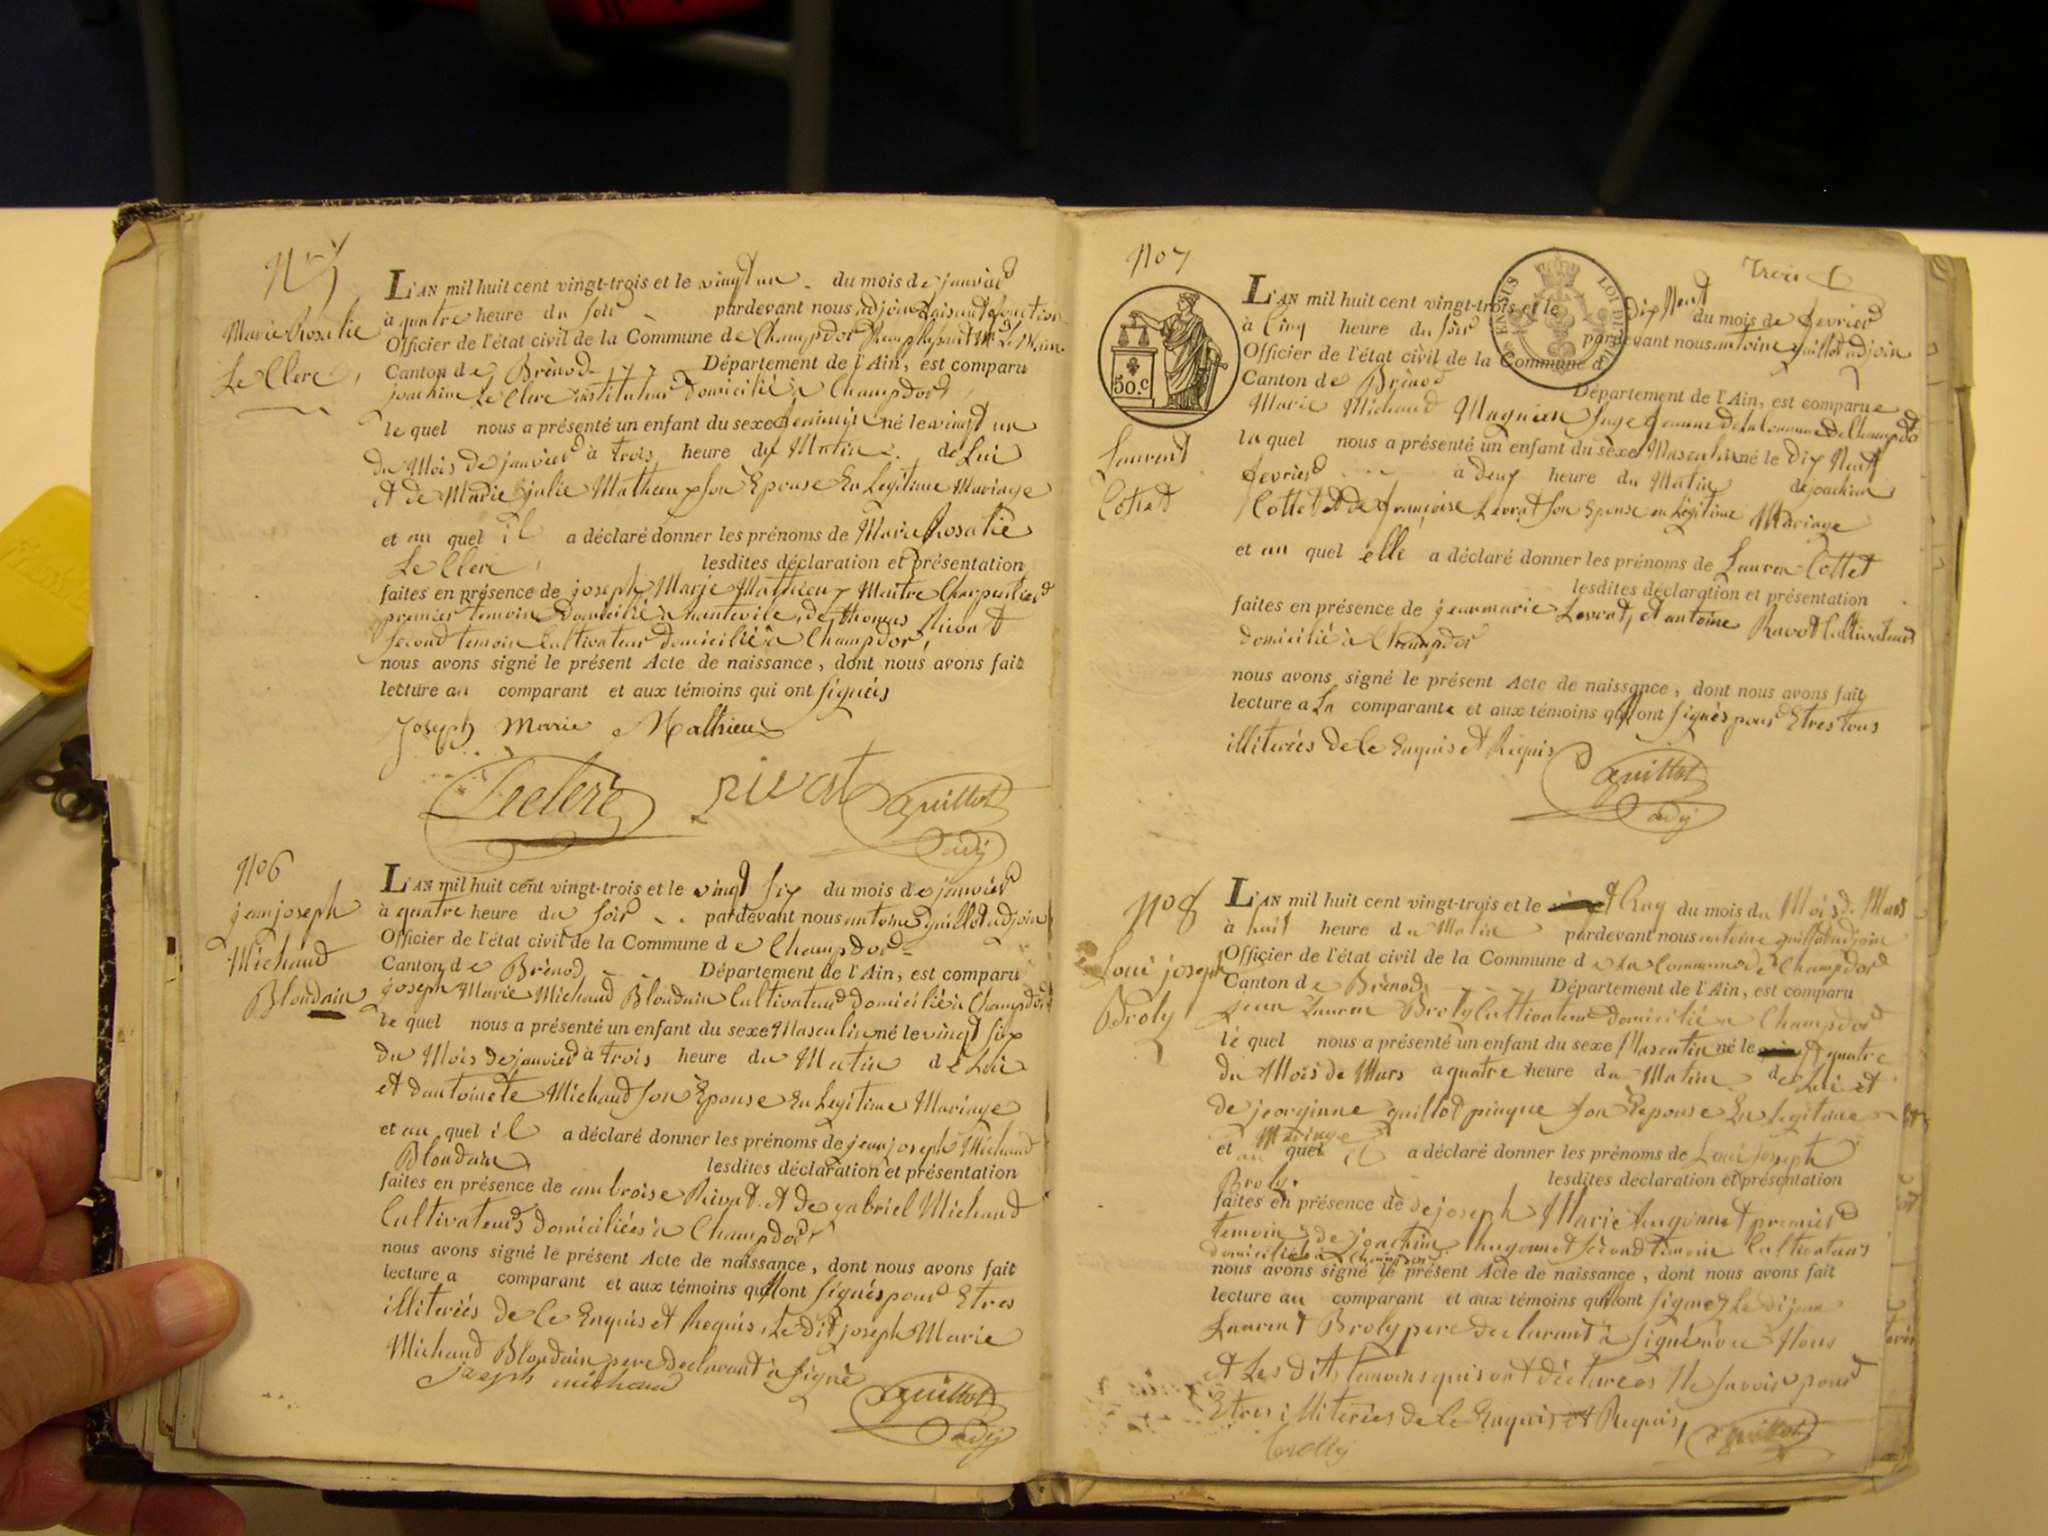 Marie Rosalie
Le Clerc
L'AN mil huit cent vingt-trois et le vingt un du mois de janvier
à quatre heure du soir pardevant nous adjoint faisant fonction
Officier de l'état civil de la Commune de Champdor Remplaçant Mr Le Maire
Canton de Brénod Département de l'Ain, est comparu
joachim Le Clerc instituteur domicilié à Champdor
le quel nous a présenté un enfant du sexe feminin né le vingt un
du Mois de janvier à trois heure du Matin de Lui
et de Marie julie Mathieux son Epouse En Legitime Mariage
et au quel il a déclaré donner les prénoms de Marie Rosalie
Le Clerc lesdites déclaration et présentation
faites en présence de joseph Marie Mathieux Maitre Charpentier
premier temoin Domicilié à hauteville, de thomas Rivat
second temoin Cultivateur domicilié à Champdor,
nous avons signé le présent Acte de naissance, dont nous avons fait
lecture au comparant et aux témoins qui ont signés
Joseph Marie Mathieux
Leclerc rivat Guillot
adj
No 6
jean joseph
Michaud
Blondain
L'AN mil huit cent vingt-trois et le vingt six du mois de janvier
à quatre heure du soir pardevant nous antoine guillot adjoin
Officier de l'état civil de la Commune de Champdor
Canton de Brénod Département de l'Ain, est comparu
joseph Marie Michaud Blondain Cultivateur domicilié à Champdor
le quel nous a présenté un enfant du sexe Masculin né le vingt six
du Mois de janvier à trois heure du Matin de Lui
et d'antoinete Michaud son Epouse En Legitime Mariage
et au quel il a déclaré donner les prénoms de jean joseph Michaud
Blondain lesdites déclaration et présentation
faites en présence de ambroise Rivat et de gabriel Michaud
Cultivateurs domiciliées à Champdor
nous avons signé le présent Acte de naissance, dont nous avons fait
lecture a comparant et aux témoins qui ont signés pour Etres
illiterées de Ce Enquis et Requis, Le dit joseph Marie
Michaud Blondain pere declarant à signé
joseph michaud
Guillot
adj
No 7
50.C
Laurent
Cottet
L'AN mil huit cent vingt-trois et le dix Neuf du mois de fevrier
à Cinq heure du soir pardevant nous antoine guillot adjoin
Officier de l'état civil de la Commune d
Canton de Brénod Département de l'Ain, est comparue
Marie Michaud Magnien sage femme de la Commune de Champdor
la quel nous a présenté un enfant du sexe Masculin né le dix Neuf
fevrier à deux heure du Matin de joachim
Cottet et de françoise Levrat son Epouse en Légitime Mariage
et au quel elle a déclaré donner les prénoms de Lauren Cottet
lesdites déclaration et présentation
faites en présence de jean marie Levrat, et antoine Ravot Cultivateurs
domicilié à Champdor
nous avons signé le présent Acte de naissance, dont nous avons fait
lecture a La comparante et aux témoins qui ont signés pour Etres tous
illiterées de Ce Enquis et Requis
Guillot
adj
No 8
Loui joseph
Broly
L'AN mil huit cent vingt-trois et le Cinq du mois du Mois de Mars
à huit heure du Matin pardevant nous antoine guillot adjoin
Officier de l'état civil de la Commune d e La Commune de Champdor
Canton de Brénod Département de l'Ain, est comparu
Jean Lauren Broly Cultivateur domicilié à Champdor
le quel nous a présenté un enfant du sexe Masculin né le quatre
du Mois de Mars à quatre heure du Matin de Lui et
de jeorginne guillot pingue son Epouse En Legitime
Mariage
et au quel il a déclaré donner les prénoms de Loui Joseph
Broly. lesdites déclaration et présentation
faites en présence de de joseph Marie hugonnet premier
temoin, de joachim hugonnet second temoin Cultivateurs
domiciliés à Champdor
nous avons signé le présent Acte de naissance, dont nous avons fait
lecture au comparant et aux témoins qui ont signer Le di jean
Laurent Broly pere declarant à signé avec Nous
et Les dits temoins qui ont déclarées Ne savoir pour
Etres illiterées de Ce Enquis et Requis,
broly Guillot